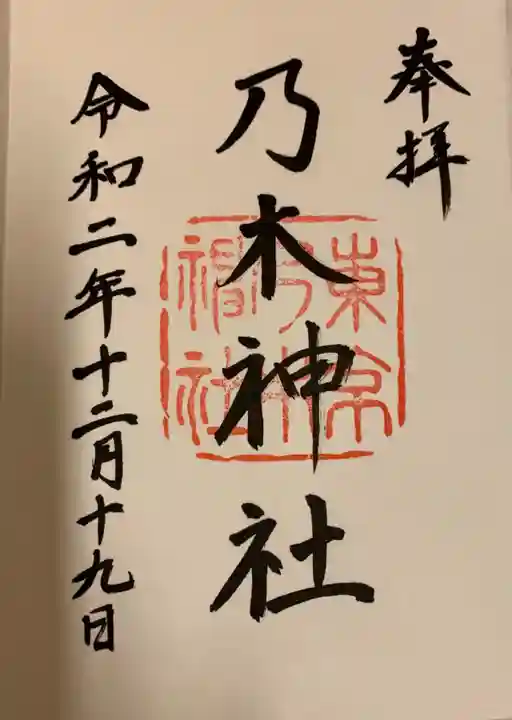 奉拝
乃木神社
東京
乃木
神社
令和二年十二月十九日